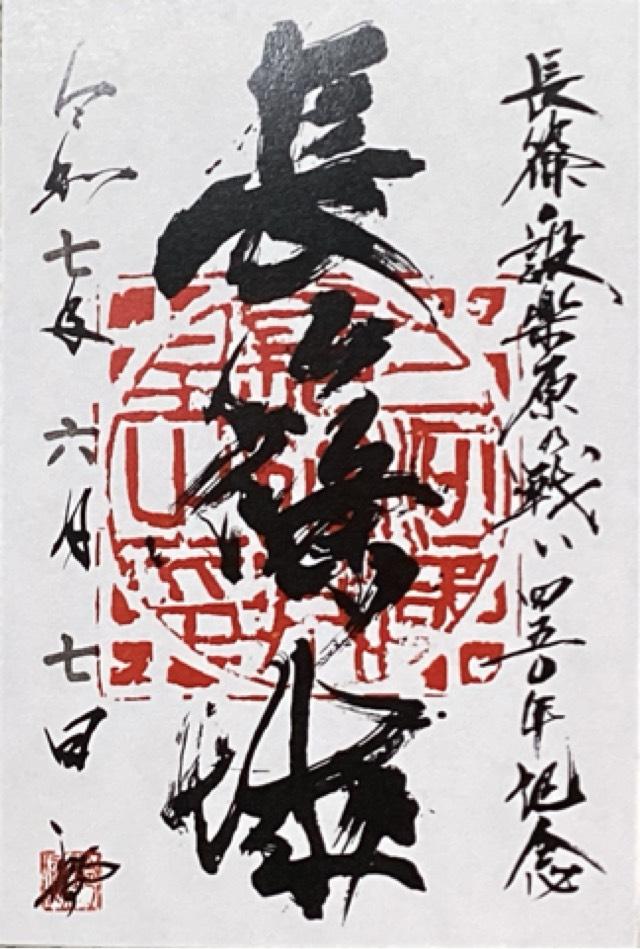 長篠・設楽原の戦い四五〇年記念
長篠城
令和七年六月七日